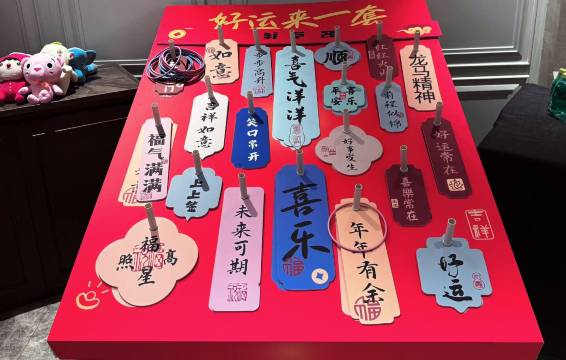 好运来一套
如意
步步高升
喜气洋洋
顺
红红火火
龙马精神
吉祥如意
笑口常开
喜乐
平安
前程似锦
好事发生
福气满满
上上签
未来可期
喜乐
福
年年有余
喜樂常在
好运常在
吉祥
福星高照
好运